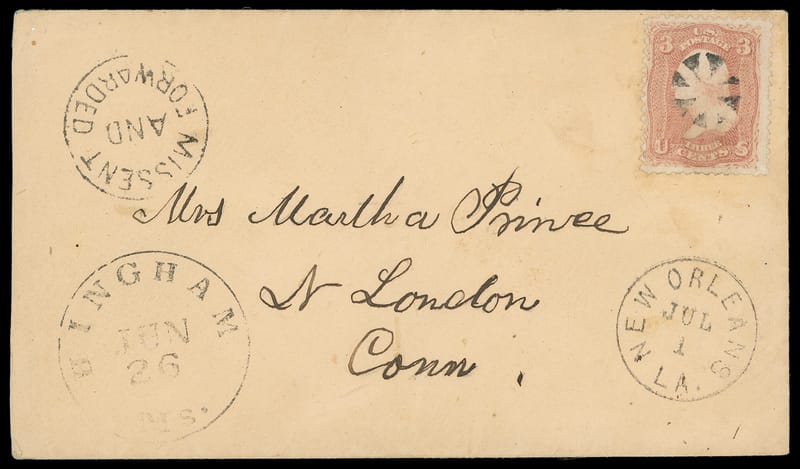 MISSENT
AND
FORWARDED
3 U.S. POSTAGE 3
U THREE CENTS S
Mrs Martha Prince
N London
Conn.
HINGHAM
JUN
26
NEW ORLEANS
JUL
1
LA.